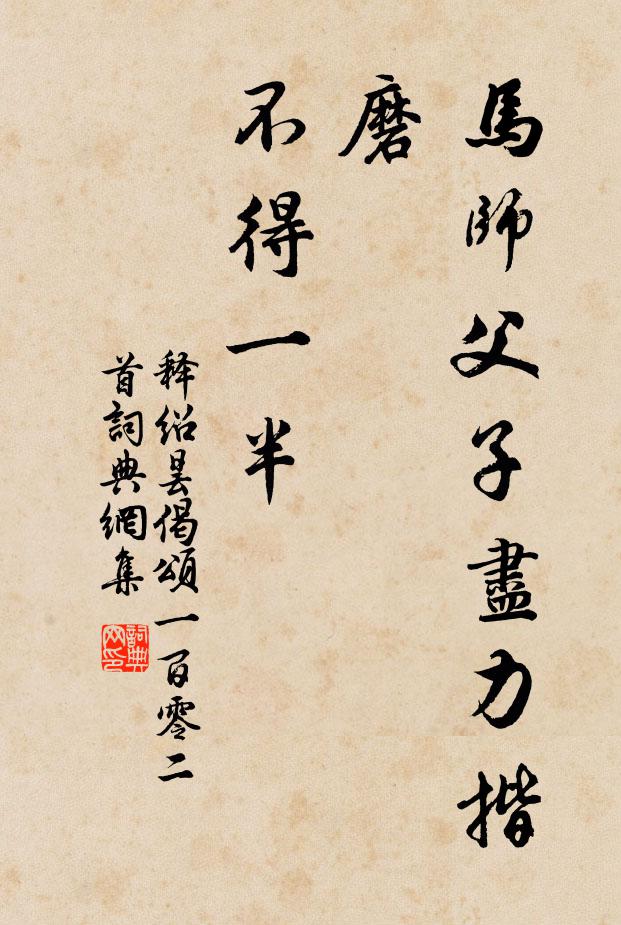 馬師父子盡力揩
磨
不得一半
释紹曇偈頌一百零二
首詞典網集
詞典网印